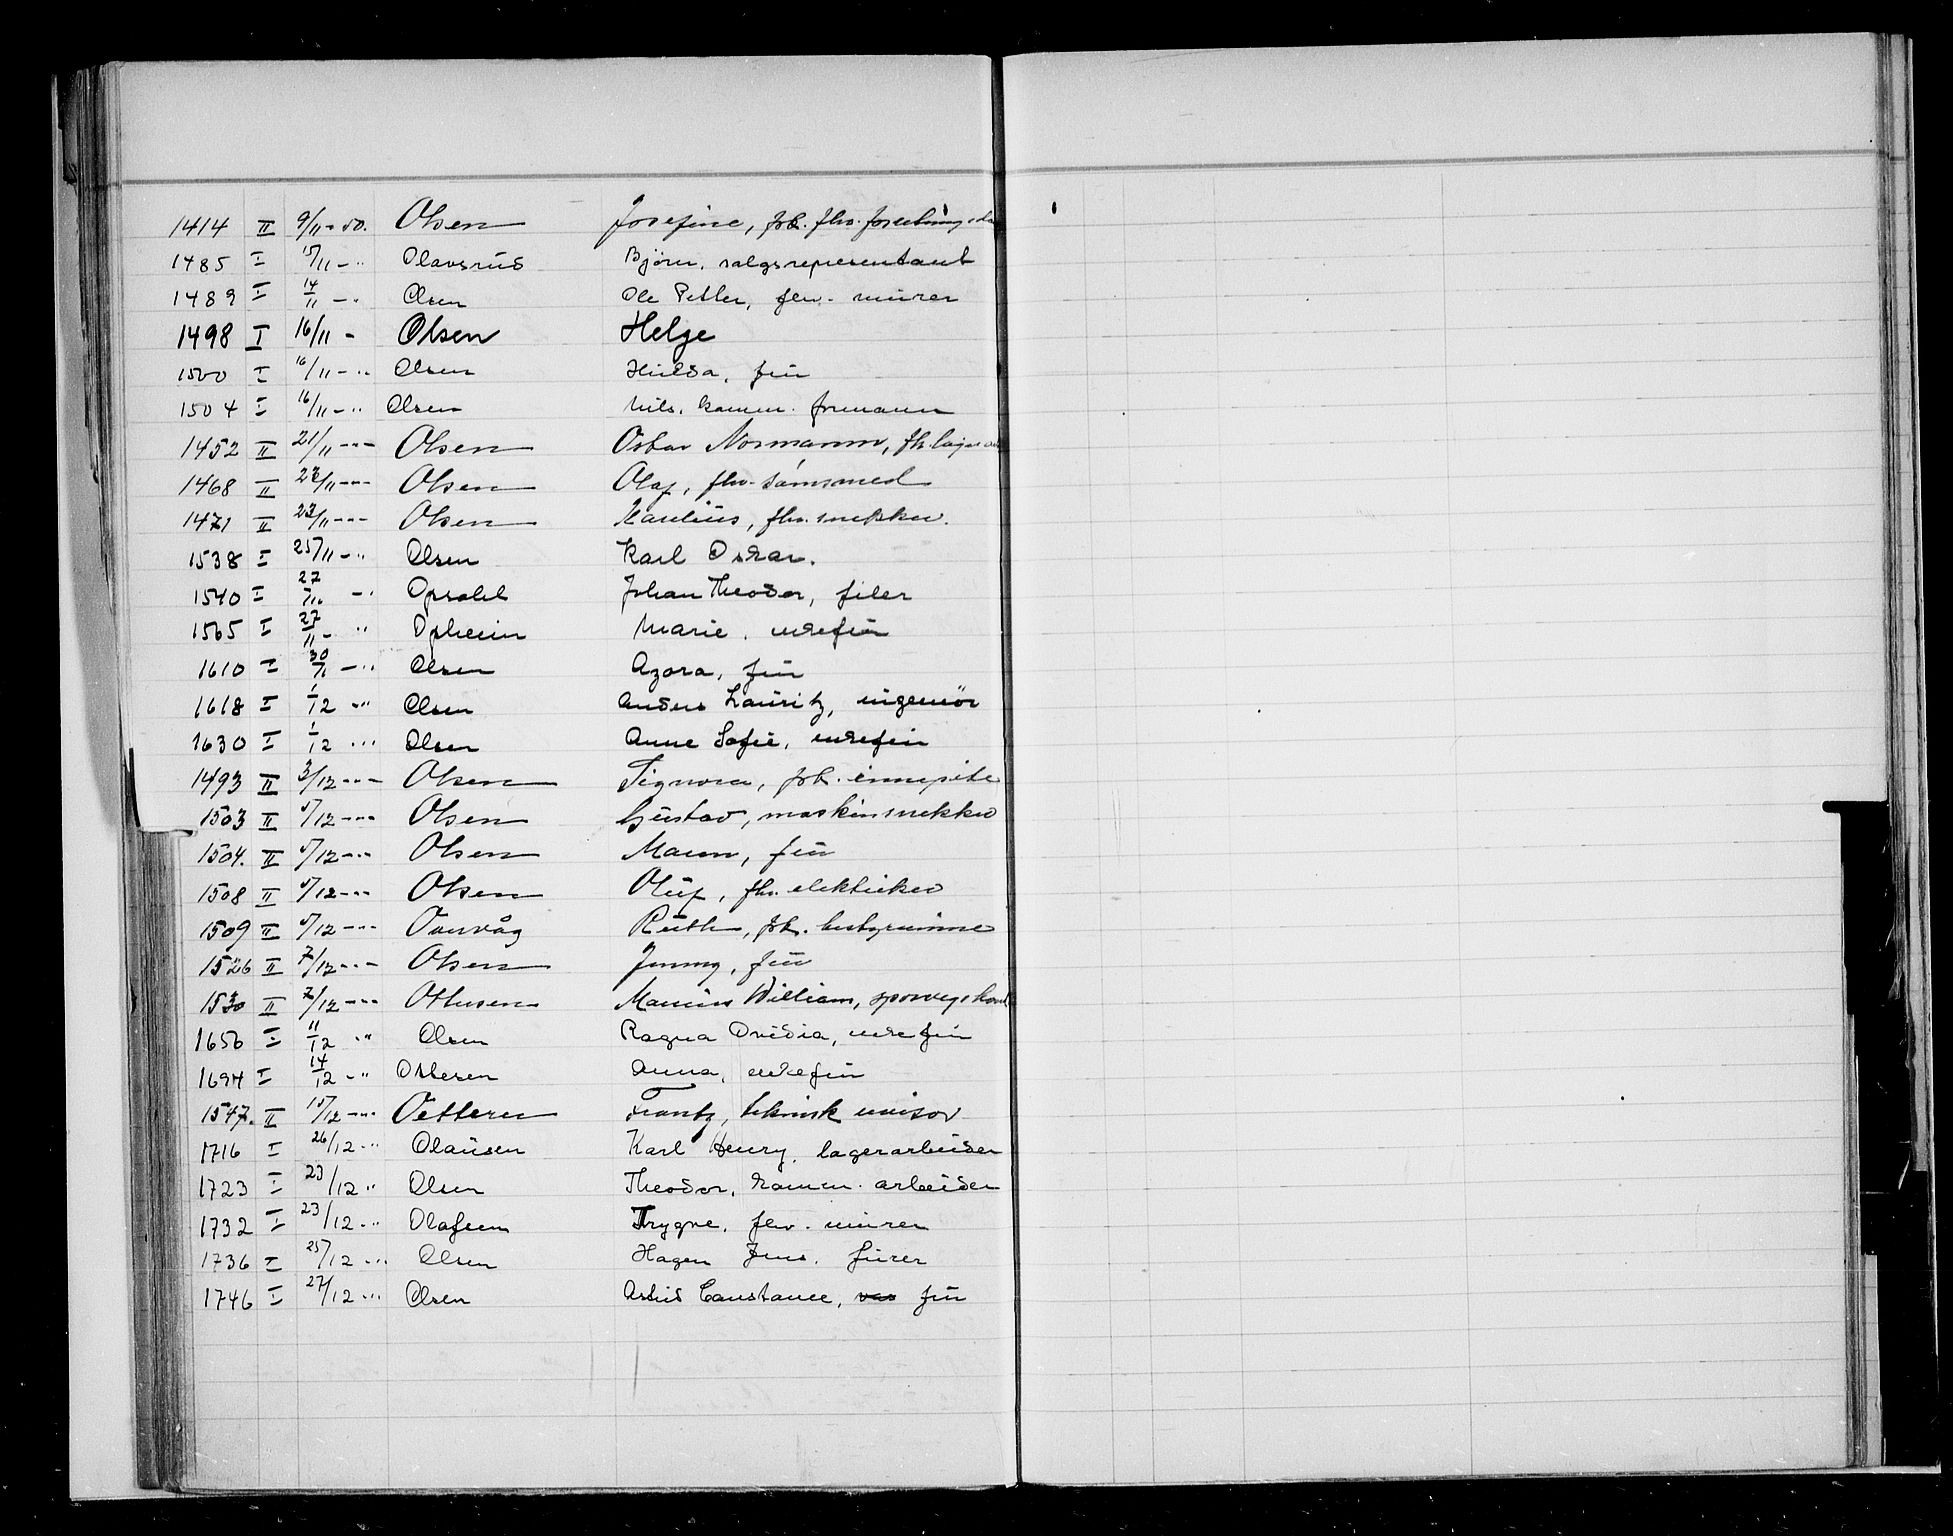 1414 II 9/11-50. Olsen Josefine, frk. fhv.
1485 I 15/11 - " Olavsrud Bjørn, salgsrepresentant
1489 I 14/11 - " Olsen Ole Petter, fhv. murer
1498 I 16/11 - Olsen Helge
1500 I 16/11 - " Olsen Hulda, fru
1504 I 16/11 - " Olsen Nils, komm. formann
1452 II 21/11 - " - Olsen Oskar Normann, fh.
1468 II 22/11 - " - Olsen Olaf, fhv.
1471 II 23/11 - " - Olsen Karelius, fhv. snekker.
1538 I 25/11 - " Olsen Karl Oskar.
1540 I 27/11 - " Opsahl Johan Theodor, filer
1565 I 27/11 - " Opheim Marie, enkefru
1610 I 30/11 - " Olsen Azora, fru
1618 I 1/12 - " Olsen Anders Lauritz, ingeniør
1630 I 1/12 " Olsen Anne Sofie, enkefru
1493 II 3/12 - " - Olsen Signora, frk.
1503 II 5/12 - " Olsen Gustav, maskinsnekker
1504. II 5/12 - " Olsen Maren, fru
1508 II 5/12 - " Olsen Oluf, fhv. elektriker
1509 II 5/12 - " Ouvåg Ruth, frk. bestyrerinne
1526 II 7/12 - " - Olsen Jenny, fru
1530 II 7/12 - " Othesen William,
1656 I 11/12 " Olsen Ragna Ovidia, enkefru
1694 I 14/12 - " Ottesen Anna, enkefru
1547. II 15/12 - " Oetteren Frantz, teknisk revisor
1716 I 26/12 - " Olausen Karl Henry, lagerarbeider
1723 I 23/12 " Olsen Theodor, komm. arbeider
1732 I 23/12 - " Olafsen Trygve, fhv. murer
1736 I 25/12 - " Olsen Hagen Jens, fürer
1746 I 27/12 - " Olsen Astrid Constance, fru